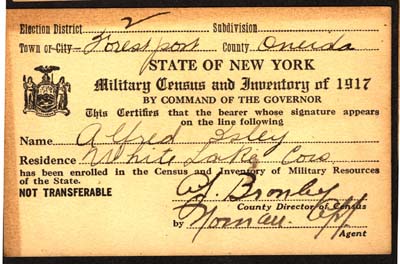 Election District 2 Subdivision
Town or City Forestport County Oneida
STATE OF NEW YORK
Military Census and Inventory of 1917
BY COMMAND OF THE GOVERNOR
This Certifies that the bearer whose signature appears
on the line following
Name Alfred Isley
Residence White Lake Cors
has been enrolled in the Census and Inventory of Military Resources
of the State.
NOT TRANSFERABLE
County Director of Census
by Norman
Agent